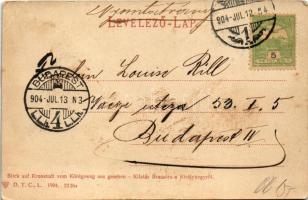 Nyomtatvány
LEVELEZŐ-LAP.
904 JUL.12
4
5
BUDAPEST
904 JUL 13 N 3
4
Louise Rill
Váczi utcza 53. I. 5
Budapest IV
Blick auf Kronstadt vom Königsweg aus gesehen - Kilátás Brassóra a Királyútgyról.
D. T. C., L. 1904.